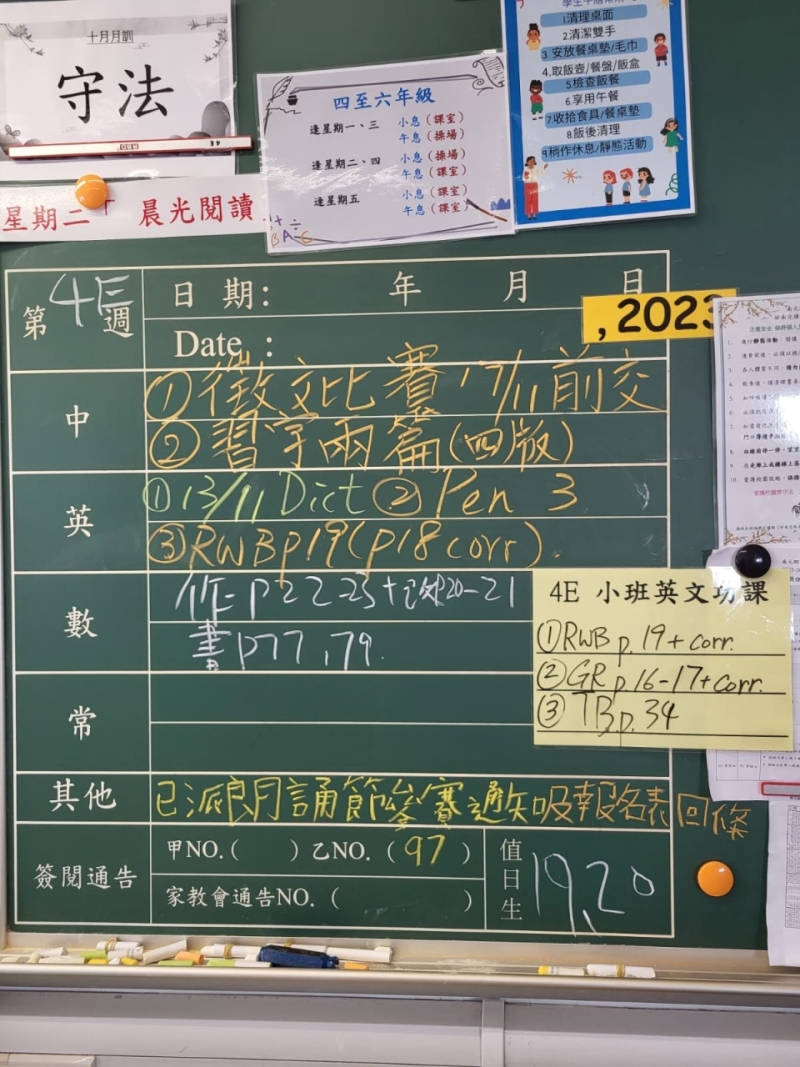 十月月訓
守法
星期二 晨光閱讀
四至六年級
逢星期一、三 小息(課室)
午息(操場)
逢星期二、四 小息(操場)
午息(課室)
逢星期五 小息(課室)
午息(課室)
1清理桌面
2清潔雙手
3 安放餐桌墊/毛巾
4.取飯壺/餐盤/飯盒
5檢查飯餐
6.享用午餐
7.收拾食具/餐桌墊
8.飯後清理
9.稍作休息/靜態活動
第 4E 週
日期: 年 月 日
Date :
, 2023
中
①徵文比賽 17/11前交
②習字兩篇(四版)
英
①13/11 Dict ②Pen 3
③RWBp.19(p18 corr).
數
作: p22-23+改p20-21
書p77,79.
4E 小班英文功課
①RWB p.19+corr.
②GR p.16-17+corr.
③TB p.34
常
其他
簽閱通告
甲NO.( ) 乙NO.(97)
家教會通告NO.( )
值日生
19,20